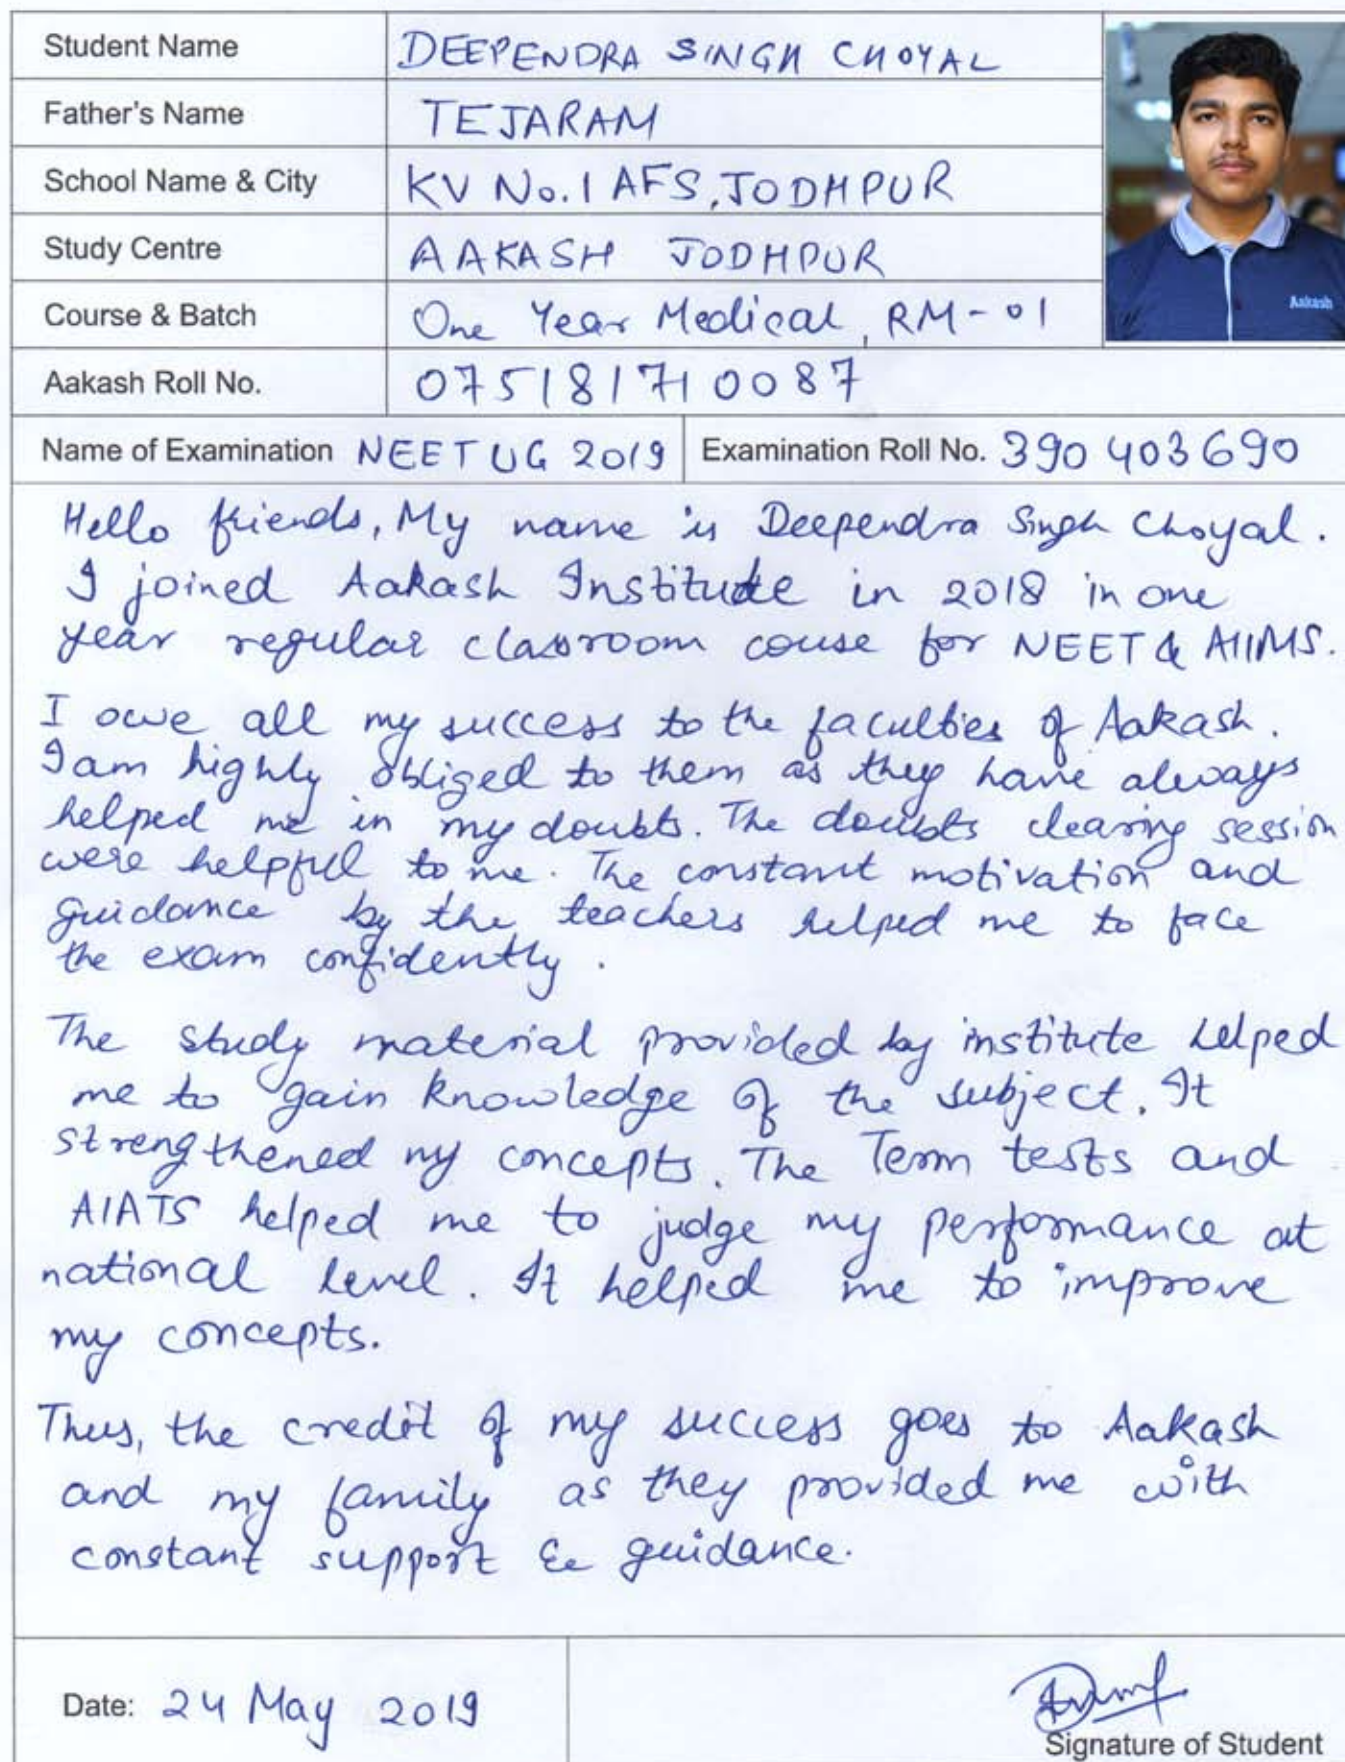 Student Name DEEPENDRA SINGH CHOYAL
Father's Name TEJARAM
School Name & City KV No.1 AFS, JODHPUR
Study Centre AAKASH JODHPUR
Course & Batch One Year Medical, RM-01
Aakash
Aakash Roll No. 075181710087
Name of Examination NEET UG 2019 Examination Roll No. 390403690
Hello friends, My name is Deependra Singh Choyal.
I joined Aakash Institude in 2018 in one
year regular classroom couse for NEET & AIIMS.
I owe all my success to the faculties of Aakash.
I am highly obliged to them as they have always
helped me in my doubts. The doubts clearing session
were helpful to me. The constant motivation and
guidance by the teachers helped me to face
the exam confidently.
The study material provided by institute helped
me to gain knowledge of the subject. It
strengthened my concepts. The Term tests and
AIATS helped me to judge my performance at
national level. It helped me to improve
my concepts.
Thus, the credit of my success goes to Aakash
and my family as they provided me with
constant support & guidance.
Date: 24 May 2019
Signature of Student